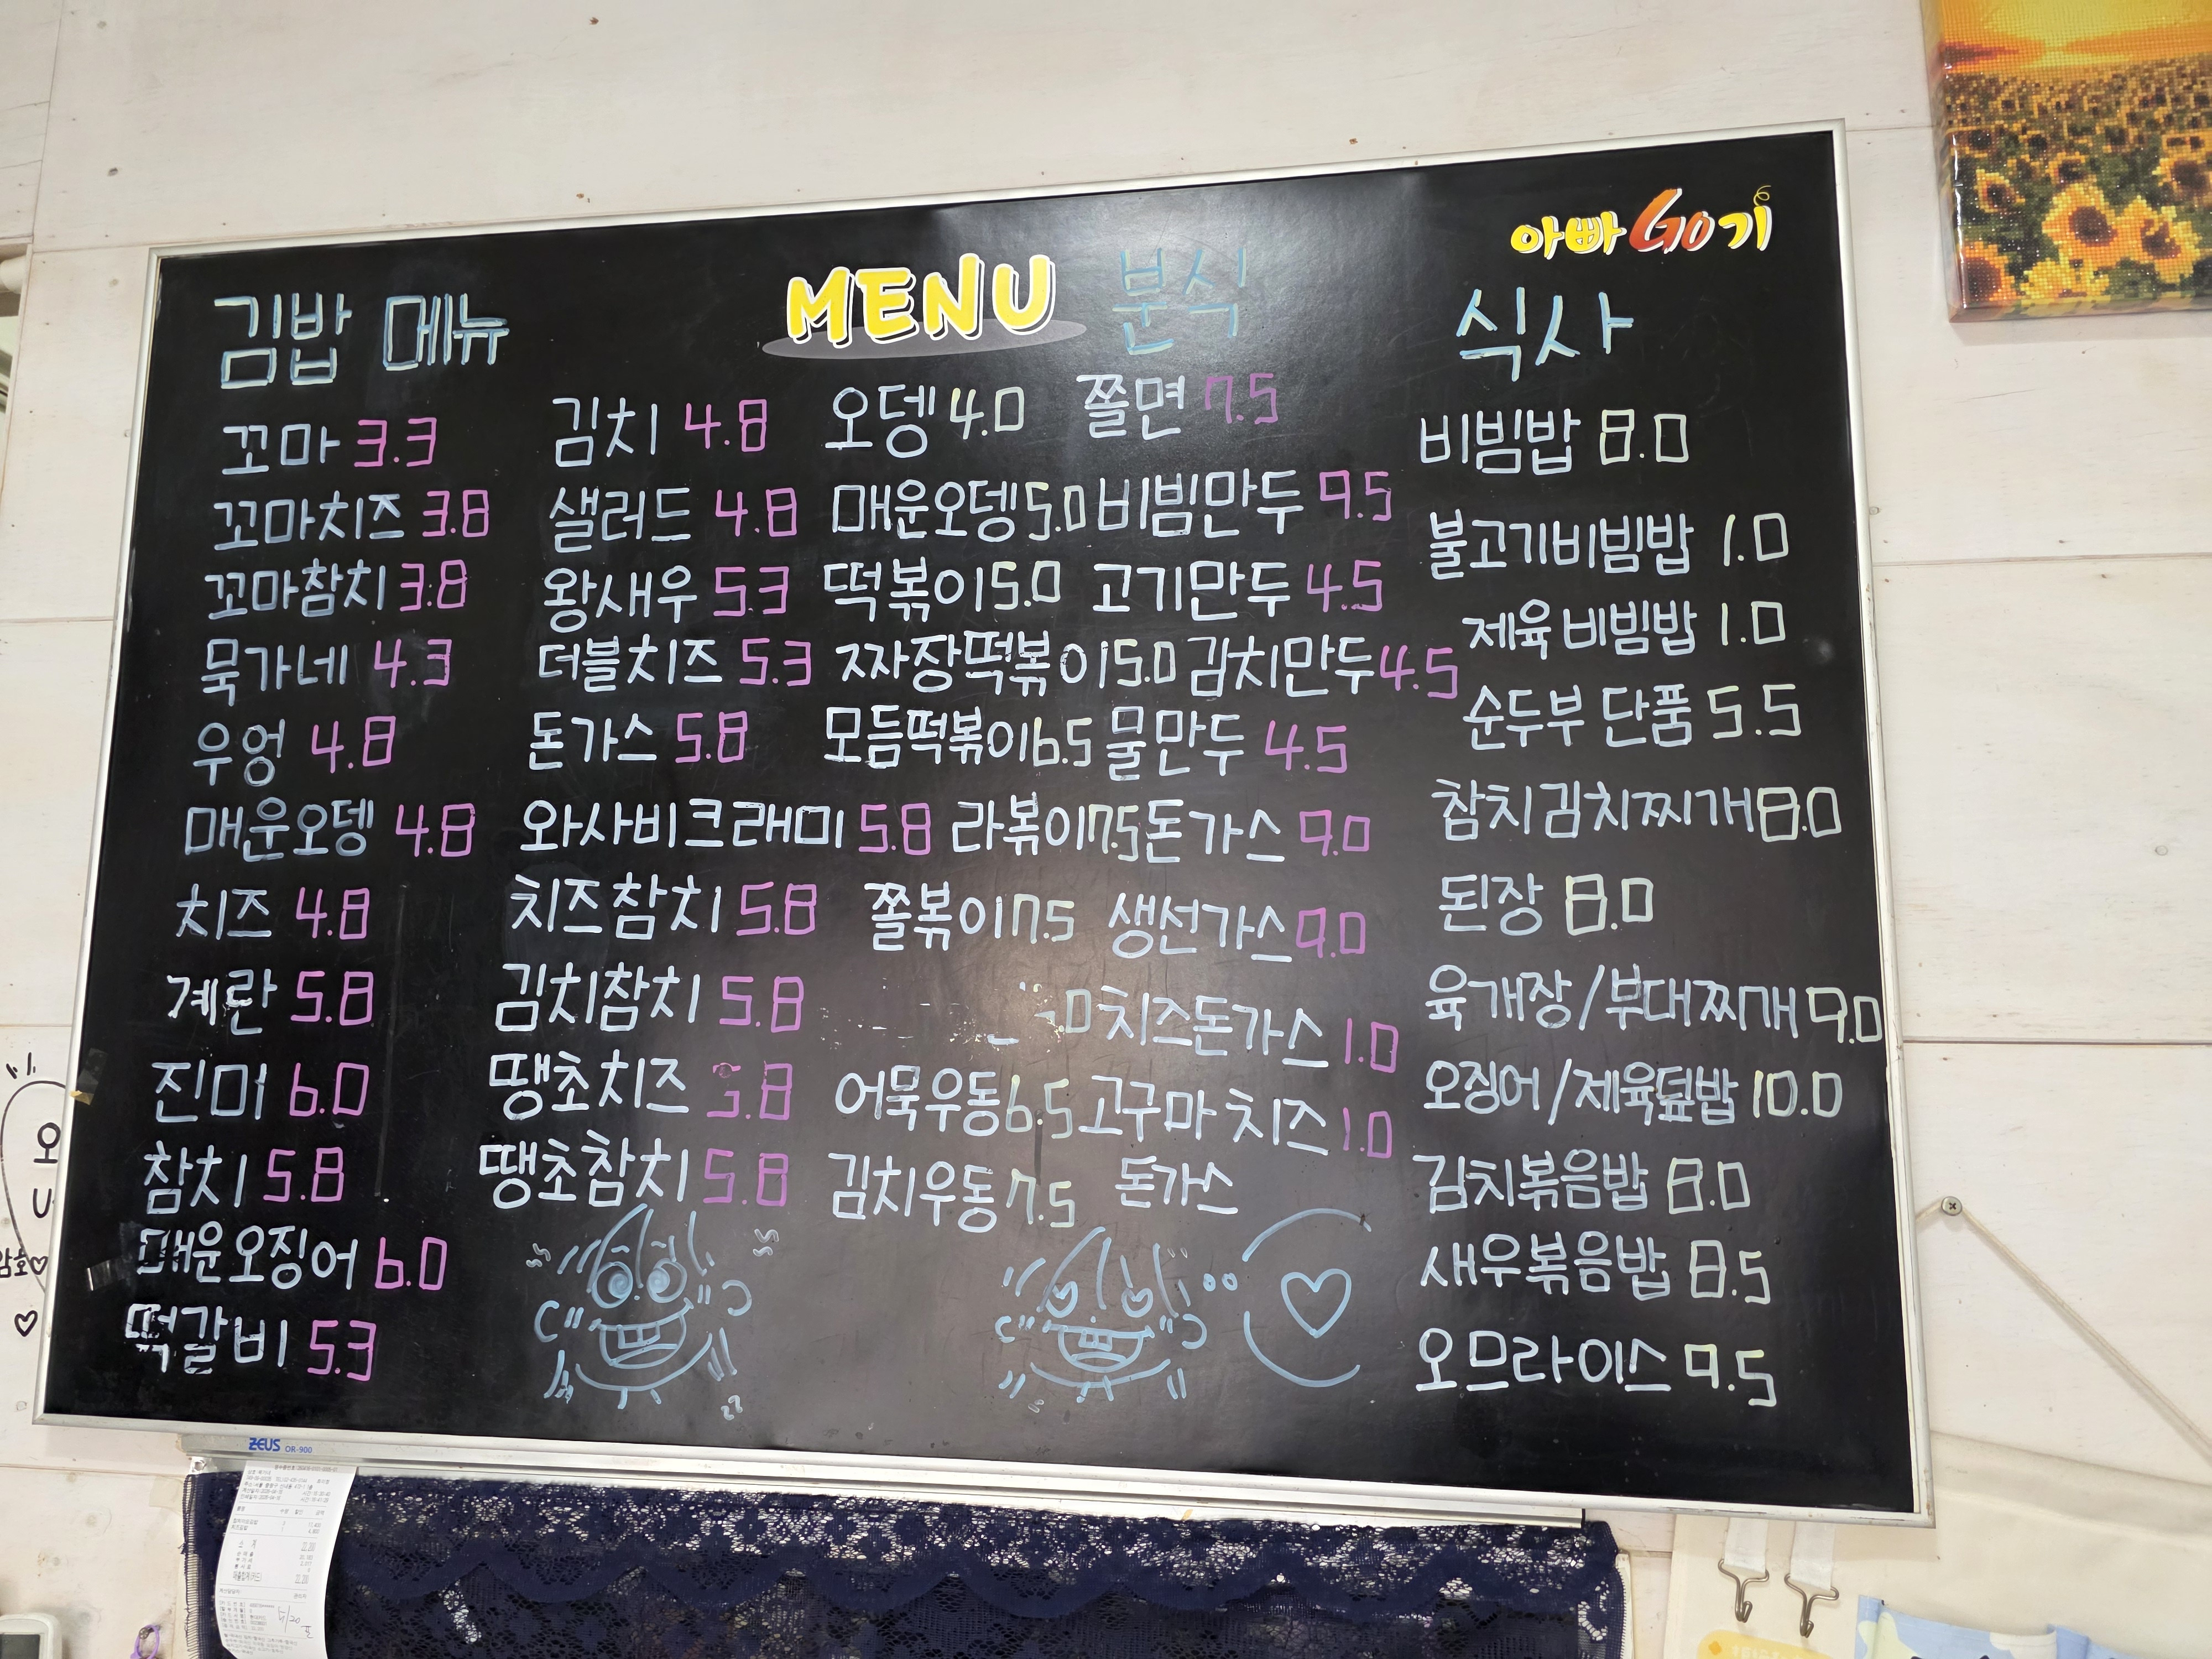 아빠Go기
MENU
김밥 메뉴
꼬마 3.3
꼬마치즈 3.8
꼬마참치 3.8
묵가네 4.3
우엉 4.8
매운오뎅 4.8
치즈 4.8
계란 5.8
진미 6.0
참치 5.8
매운오징어 6.0
떡갈비 5.3
김치 4.8
샐러드 4.8
왕새우 5.3
더블치즈 5.3
돈가스 5.8
와사비크래미 5.8
치즈참치 5.8
김치참치 5.8
땡초치즈 5.8
땡초참치 5.8
분식
오뎅 4.0
매운오뎅 5.0
떡볶이 5.0
짜장떡볶이 5.0
모듬떡볶이 6.5
라볶이 7.5
쫄볶이 7.5
어묵우동 6.5
김치우동 7.5
쫄면 7.5
비빔만두 9.5
고기만두 4.5
김치만두 4.5
물만두 4.5
돈가스 9.0
생선가스 9.0
치즈돈가스 1.0
고구마 치즈 1.0
돈가스
식사
비빔밥 8.0
불고기비빔밥 1.0
제육비빔밥 1.0
순두부 단품 5.5
참치김치찌개 8.0
된장 8.0
육개장/부대찌개 9.0
오징어/제육덮밥 10.0
김치볶음밥 8.0
새우볶음밥 8.5
오므라이스 9.5
ZEUS OR-900